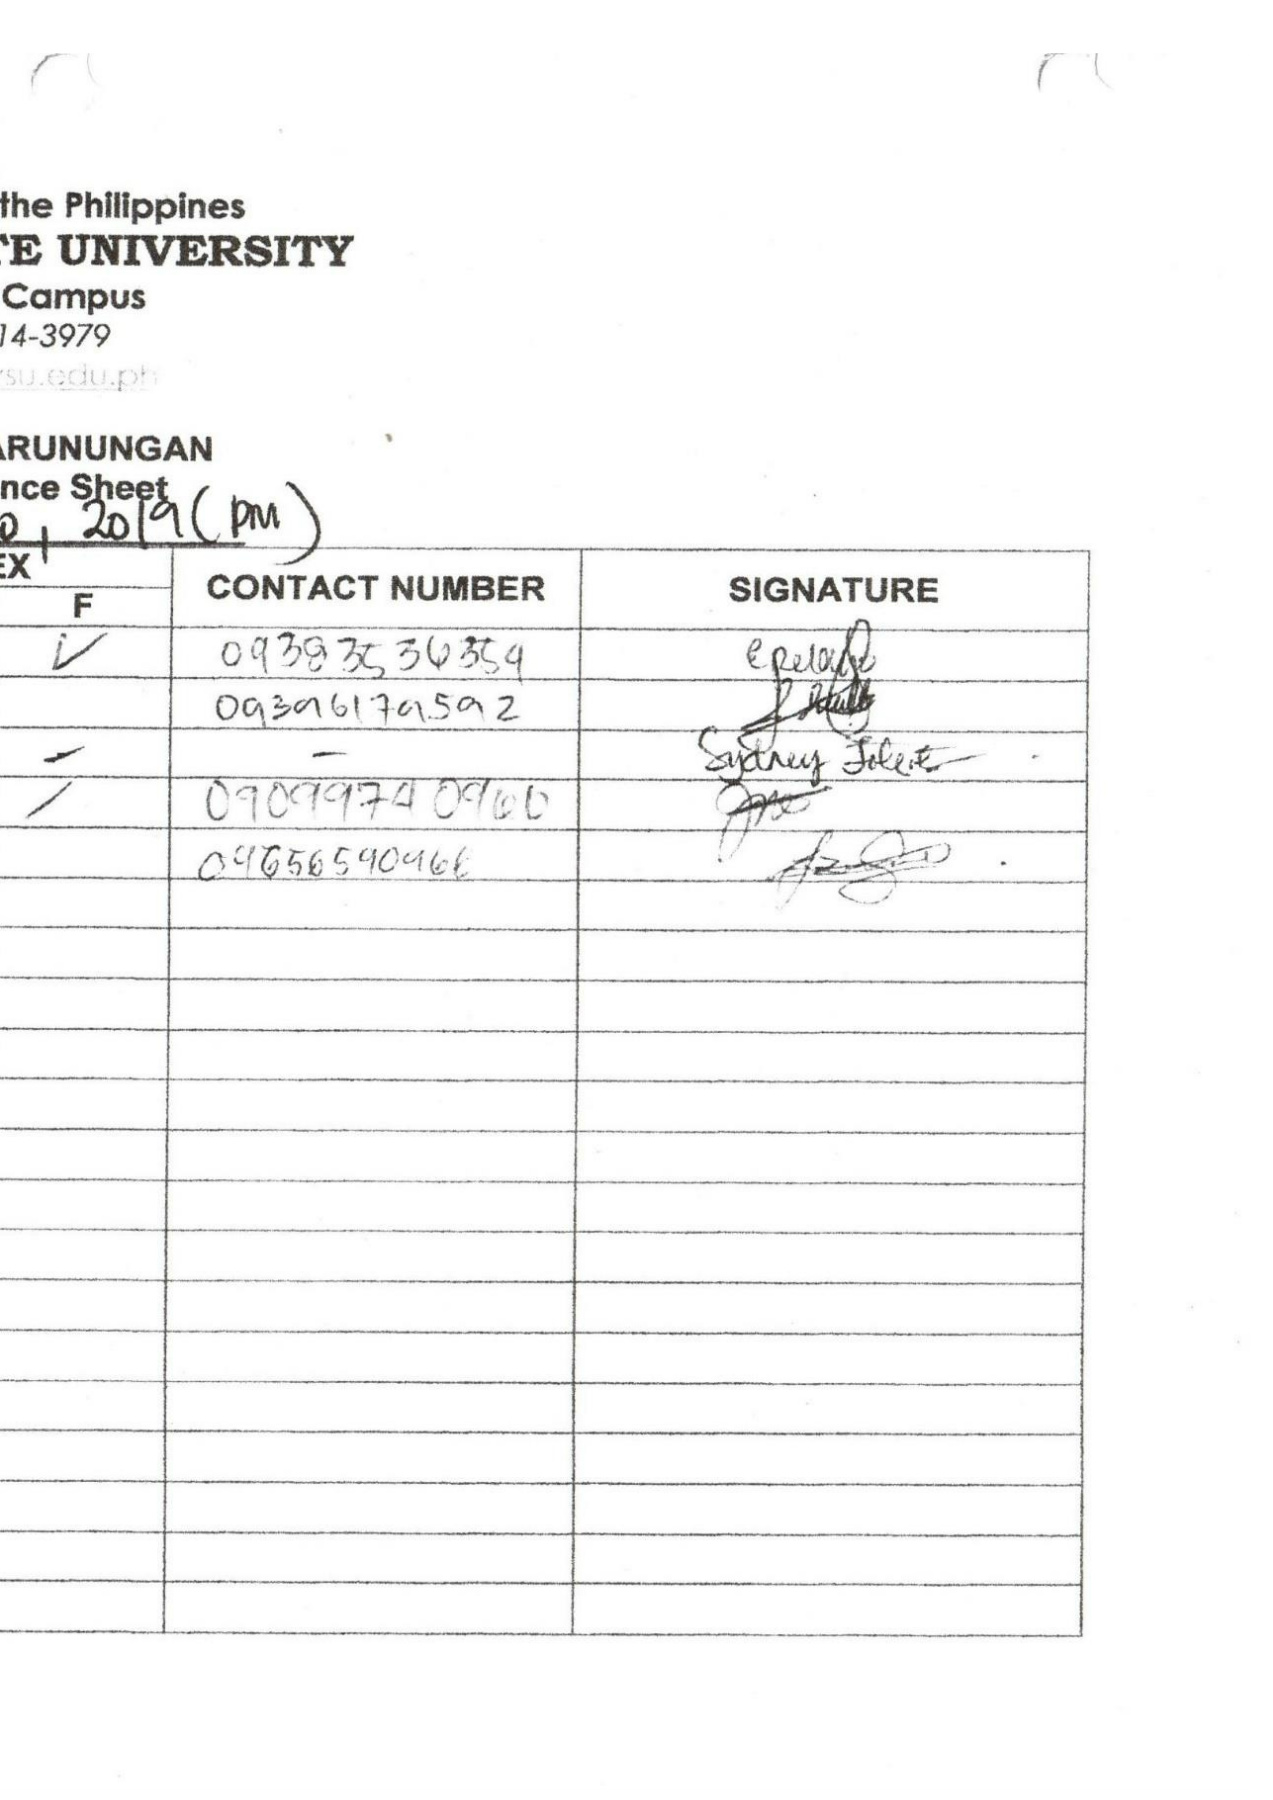 the Philippines
TE UNIVERSITY
Campus
14-3979
su.edu.ph
ARUNUNGAN
nce Sheet
, 2019 (PM)
EX CONTACT NUMBER SIGNATURE
F
09383536359
09396179592
- - Sydney
09099740966